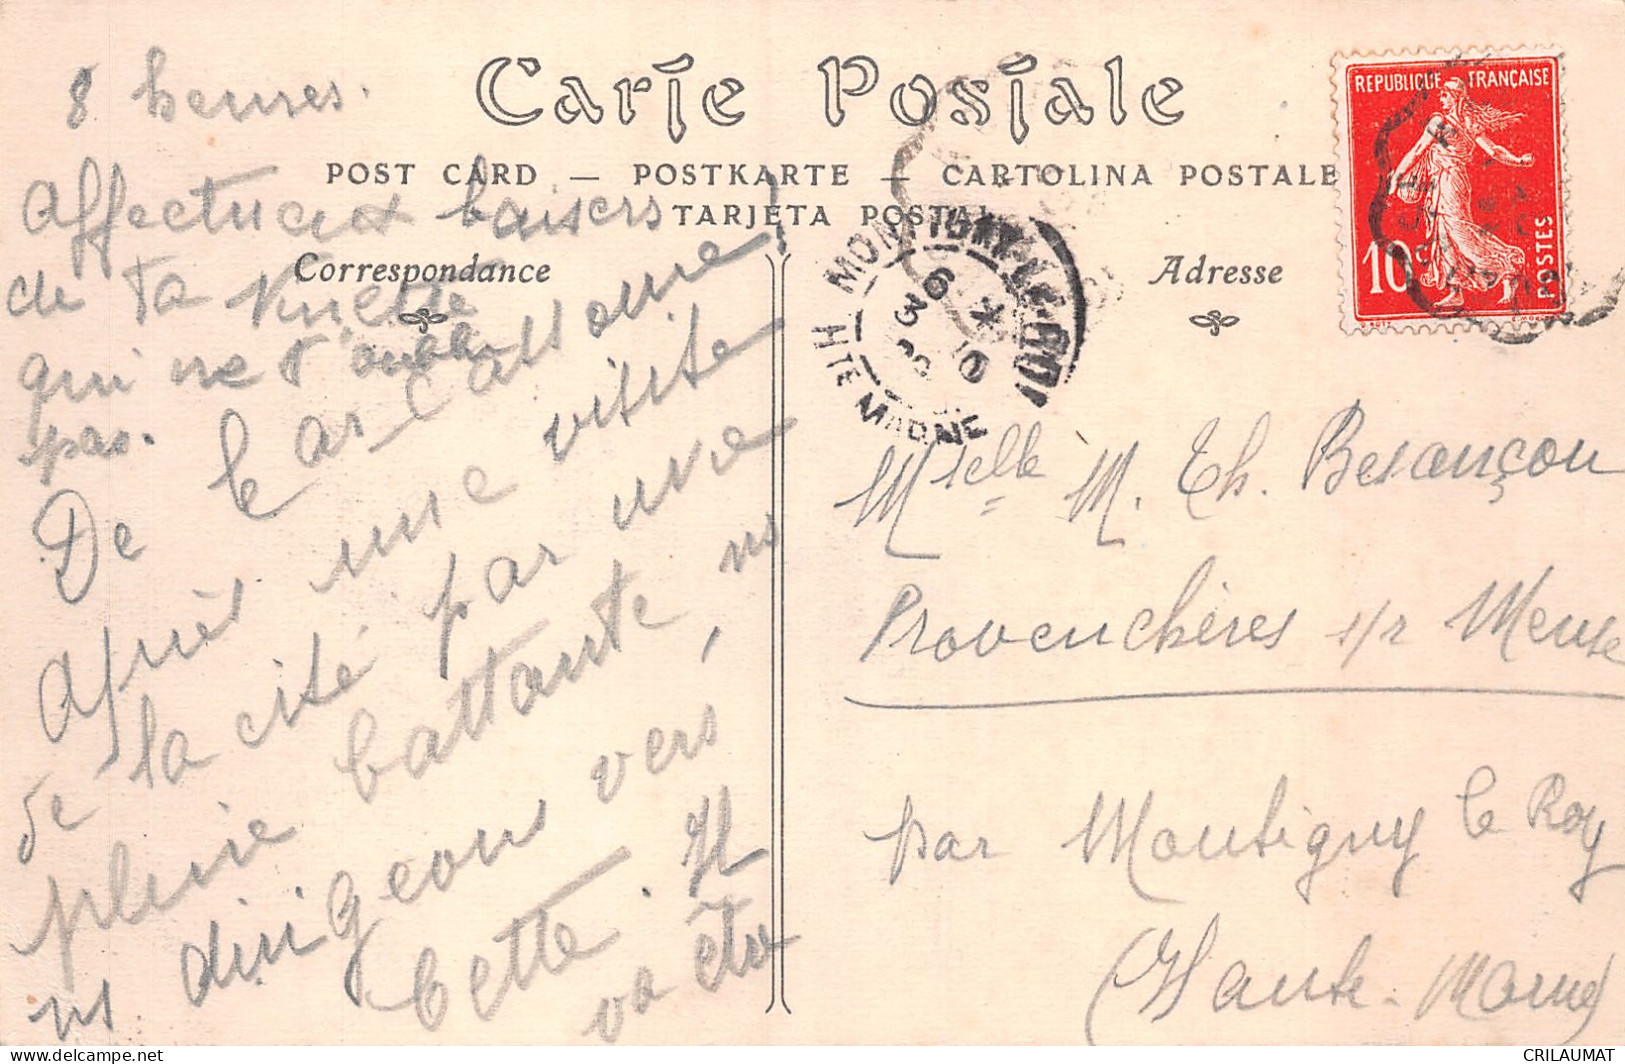 Carte Postale
POST CARD — POSTKARTE — CARTOLINA POSTALE
TARJETA POSTAL
Correspondance
Adresse
REPUBLIQUE FRANÇAISE
10
POSTES
HTE MARNE
De Carcassonne
Après une visite
de la cité par une
pluie battante, ns
ns dirigeons vers
Cette. Il
va être
8 heures.
Affectueux baisers
de ta
qui ne t'oublie
pas.
Mselle M. Th. Besançon
Provenchères s/r Meuse
par Montigny le Roy
(Haute-Marne)
CRILAUMAT